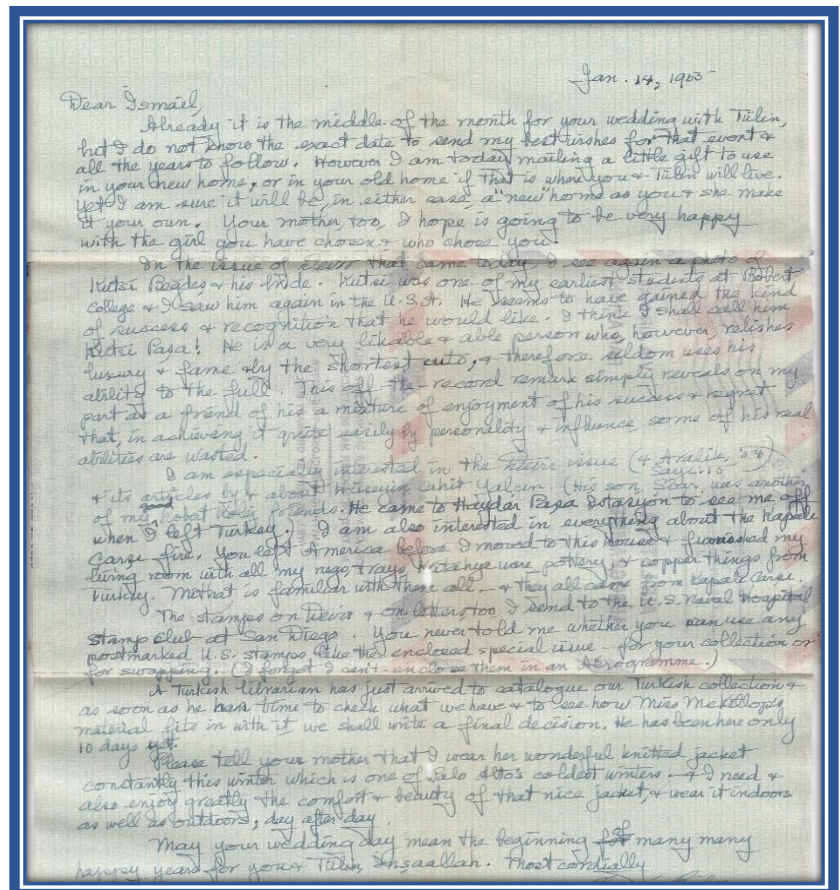 Jan. 14, 1955
Dear Ismail,
Already it is the middle of the month for your wedding with Tülin,
but I do not know the exact date to send my best wishes for that event &
all the years to follow. However I am today mailing a little gift to use
in your new home, or in your old home if that is where you & Tülin will live.
Yet I am sure it will be, in either case, a "new" home as you & she make
it your own. Your mother, too, I hope is going to be very happy
with the girl you have chosen & who chose you.
In the issue of Devir that came today I see again a photo of
Kutsi & his bride. Kutsi was one of my earliest students at Robert
College & I saw him again in the U.S.A. He seems to have gained the kind
of success & recognition that he would like. I think I shall call him
Kutsi Paşa! He is a very likable & able person who, however, relishes
luxury & fame by the shortest cuts, & therefore seldom uses his
ability to the full. This off-the-record remark simply reveals on my
part as a friend of his a mixture of enjoyment of his success & regret
that, in achieving it quite easily by personality & influence, some of his real
abilities are wasted.
I am especially interested in the Devir issue (4 Aralık, 54)
& its articles by & about Hüseyin Cahit Yalçın (His son, was another
of my good friends. He came to Haydar Paşa Istasyon to see me off
when I left Turkey.) I am also interested in everything about the Kapalı
Çarşı fire. You left America before I moved to this house & furnished my
living room with all my rugs, trays, Kütahya ware pottery, & copper things from
Turkey. is familiar with them all - & they all came from Kapalı Çarşı.
The stamps on Devir & on letters too, I send to the U.S. Naval Hospital
Stamp Club at San Diego. You never told me whether you can use any
postmarked U.S. stamps like the enclosed special issue - for your collection or
for swapping. (I forgot I can't enclose them in an Aerogramme.)
A Turkish librarian has just arrived to catalogue our Turkish collection &
as soon as he has time to check what we have & to see how Miss McKillop's
material fits in with it we shall write a final decision. He has been here only
10 days yet.
Please tell your mother that I wear her wonderful knitted jacket
constantly this winter which is one of Palo Alto's coldest winters. - & I need &
also enjoy greatly the comfort & beauty of that nice jacket, & wear it indoors
as well as outdoors, day after day.
May your wedding day mean the beginning of many many
happy years for you & Tülin, Inşaallah. Most cordially